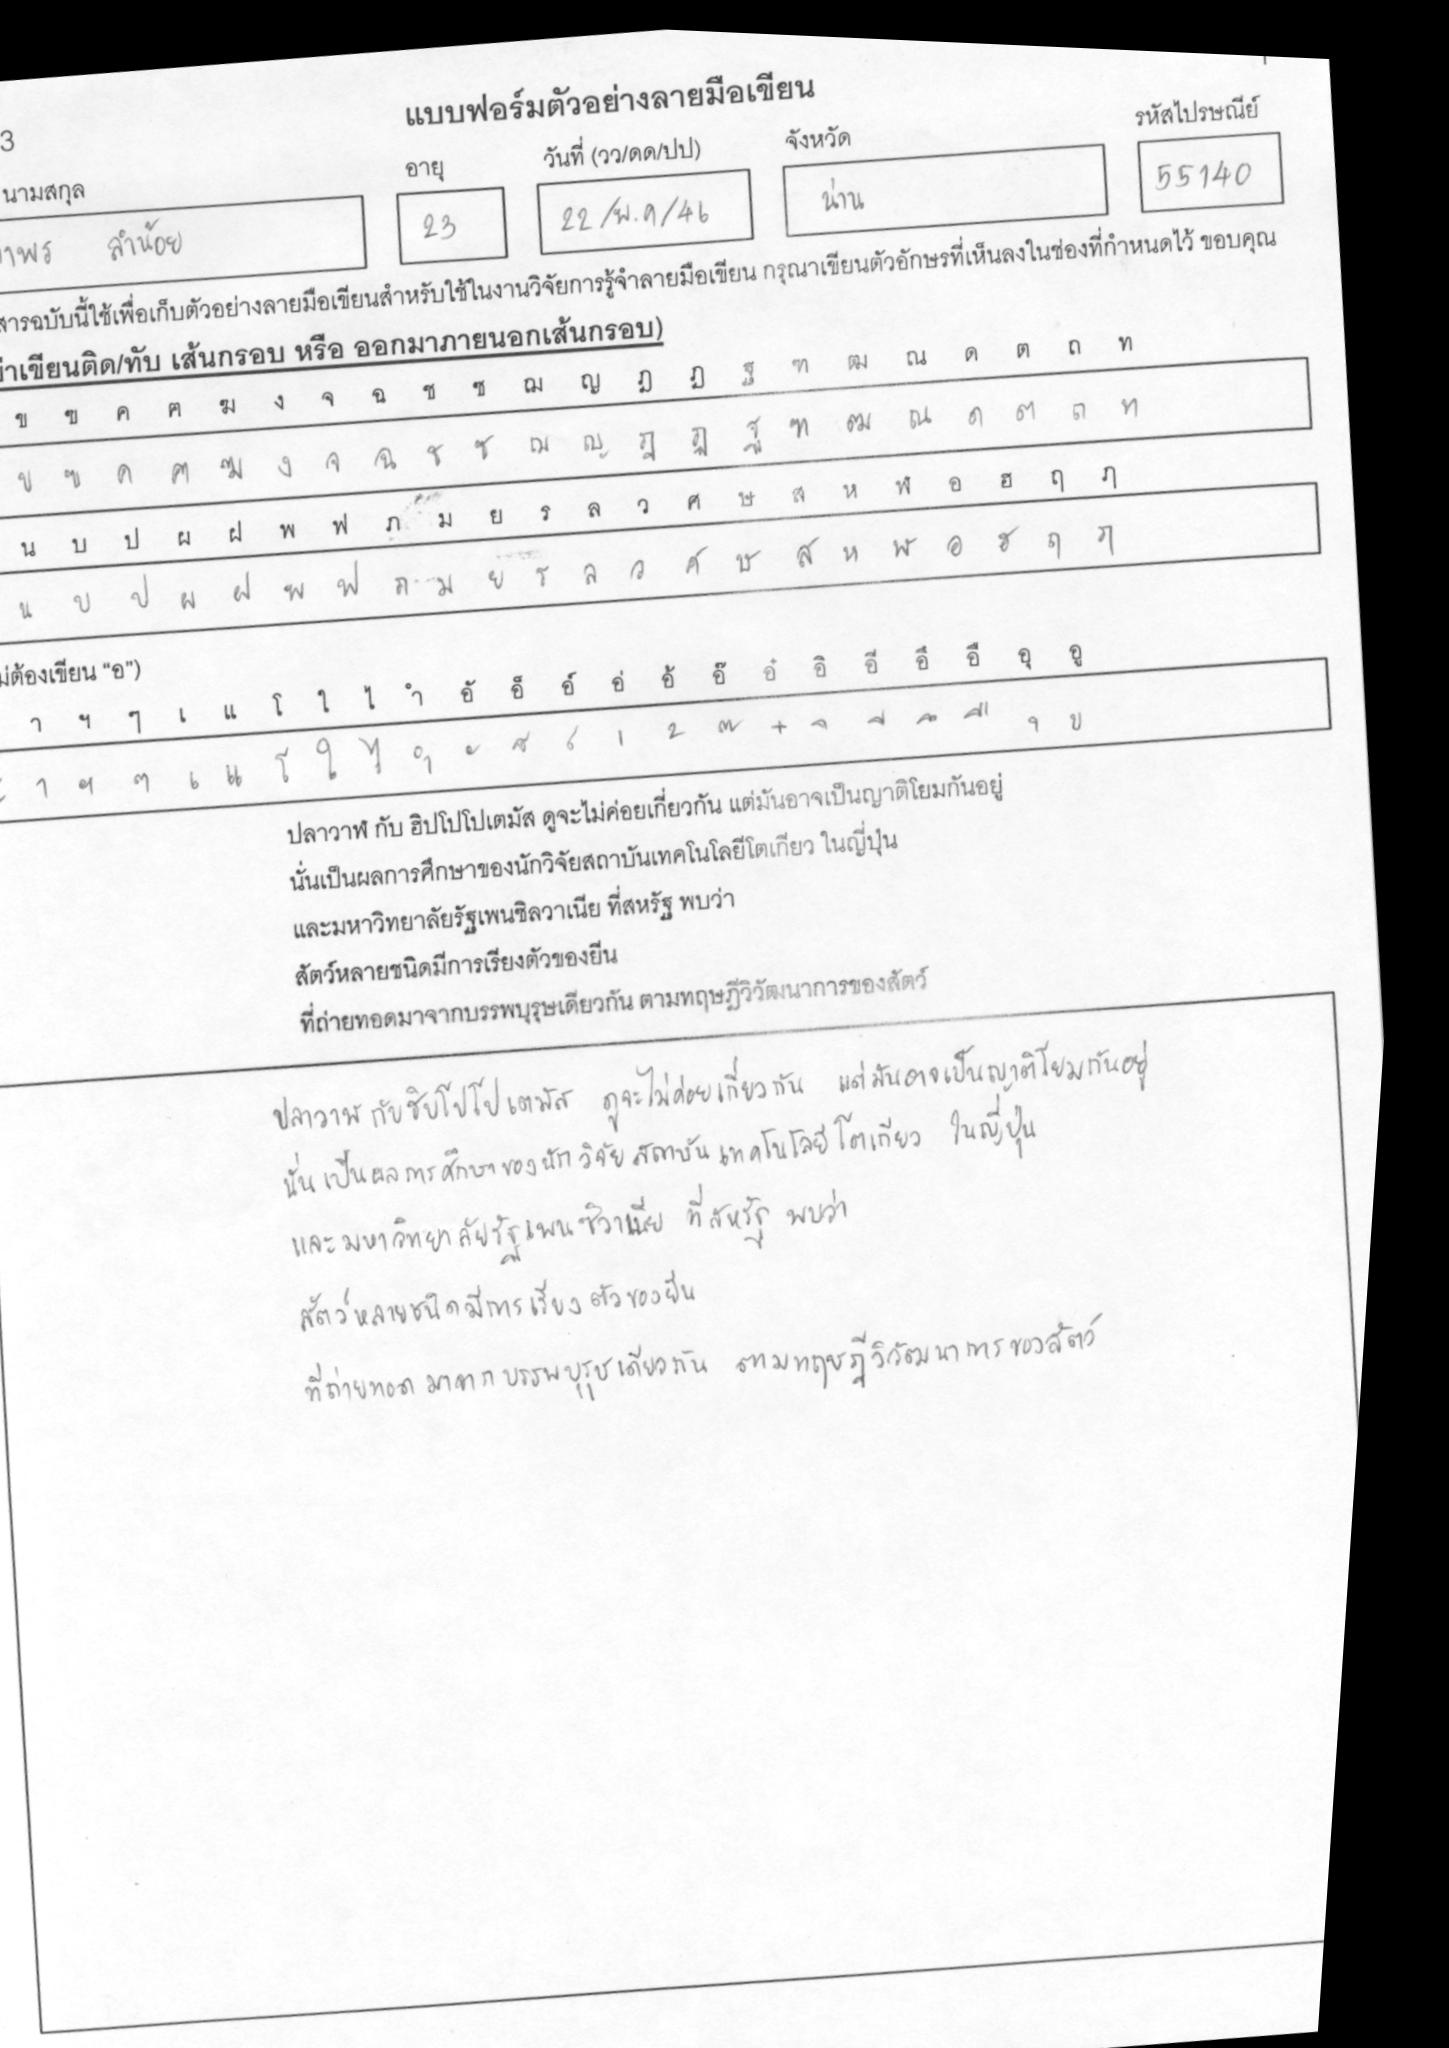 แบบฟอร์มตัวอย่างลายมือเขียน
3
นามสกุล อายุ วันที่ (วว/ดด/ปป) จังหวัด รหัสไปรษณีย์
ลำน้อย 23 22/พ.ค/46 น่าน 55140
สารฉบับนี้ใช้เพื่อเก็บตัวอย่างลายมือเขียนสำหรับใช้ในงานวิจัยการรู้จำลายมือเขียน กรุณาเขียนตัวอักษรที่เห็นลงในช่องที่กำหนดไว้ ขอบคุณ
เขียนติด/ทับ เส้นกรอบ หรือ ออกมาภายนอกเส้นกรอบ)
ข ฃ ค ฅ ฆ ง จ ฉ ช ซ ฌ ญ ฎ ฏ ฐ ฑ ฒ ณ ด ต ถ ท
ข ฃ ค ฅ ฆ ง จ ฉ ช ซ ฌ ญ ฎ ฏ ฐ ฑ ฒ ณ ด ต ถ ท
น บ ป ผ ฝ พ ฟ ภ ม ย ร ล ว ศ ษ ส ห ฬ อ ฮ ฤ ฦ
น บ ป ผ ฝ พ ฟ ภ ม ย ร ล ว ศ ษ ส ห ฬ อ ฮ ฤ ฦ
ม่ต้องเขียน “อ”)
า ฯ ๆ เ แ โ ใ ไ ำ อั อ็ อ์ อ่ อ้ อ๊ อ๋ อิ อี อึ อื อุ อู
า ฯ ๆ เ แ โ ใ ไ ำ ั ็ ์ ่ ้ ๊ ๋ ิ ี ึ ื ุ ู
ปลาวาฬ กับ ฮิปโปโปเตมัส ดูจะไม่ค่อยเกี่ยวกัน แต่มันอาจเป็นญาติโยมกันอยู่
นั่นเป็นผลการศึกษาของนักวิจัยสถาบันเทคโนโลยีโตเกียว ในญี่ปุ่น
และมหาวิทยาลัยรัฐเพนซิลวาเนีย ที่สหรัฐ พบว่า
สัตว์หลายชนิดมีการเรียงตัวของยีน
ที่ถ่ายทอดมาจากบรรพบุรุษเดียวกัน ตามทฤษฎีวิวัฒนาการของสัตว์
ปลาวาฬ กับฮิบโปโปเตมัส ดูจะไม่ค่อยเกี่ยวกัน แต่มันอาจเป็นญาติโยมกันอยู่
นั่นเป็นผลการศึกษาของนักวิจัยสถาบันเทคโนโลยีโตเกียว ในญี่ปุ่น
และมหาวิทยาลัยรัฐเพนซิวาเนีย ที่สหรัฐ พบว่า
สัตว์หลายชนิดมีการเรียงตัวของยีน
ที่ถ่ายทอดมาจากบรรพบุรุษเดียวกัน ตามทฤษฎีวิวัฒนาการของสัตว์